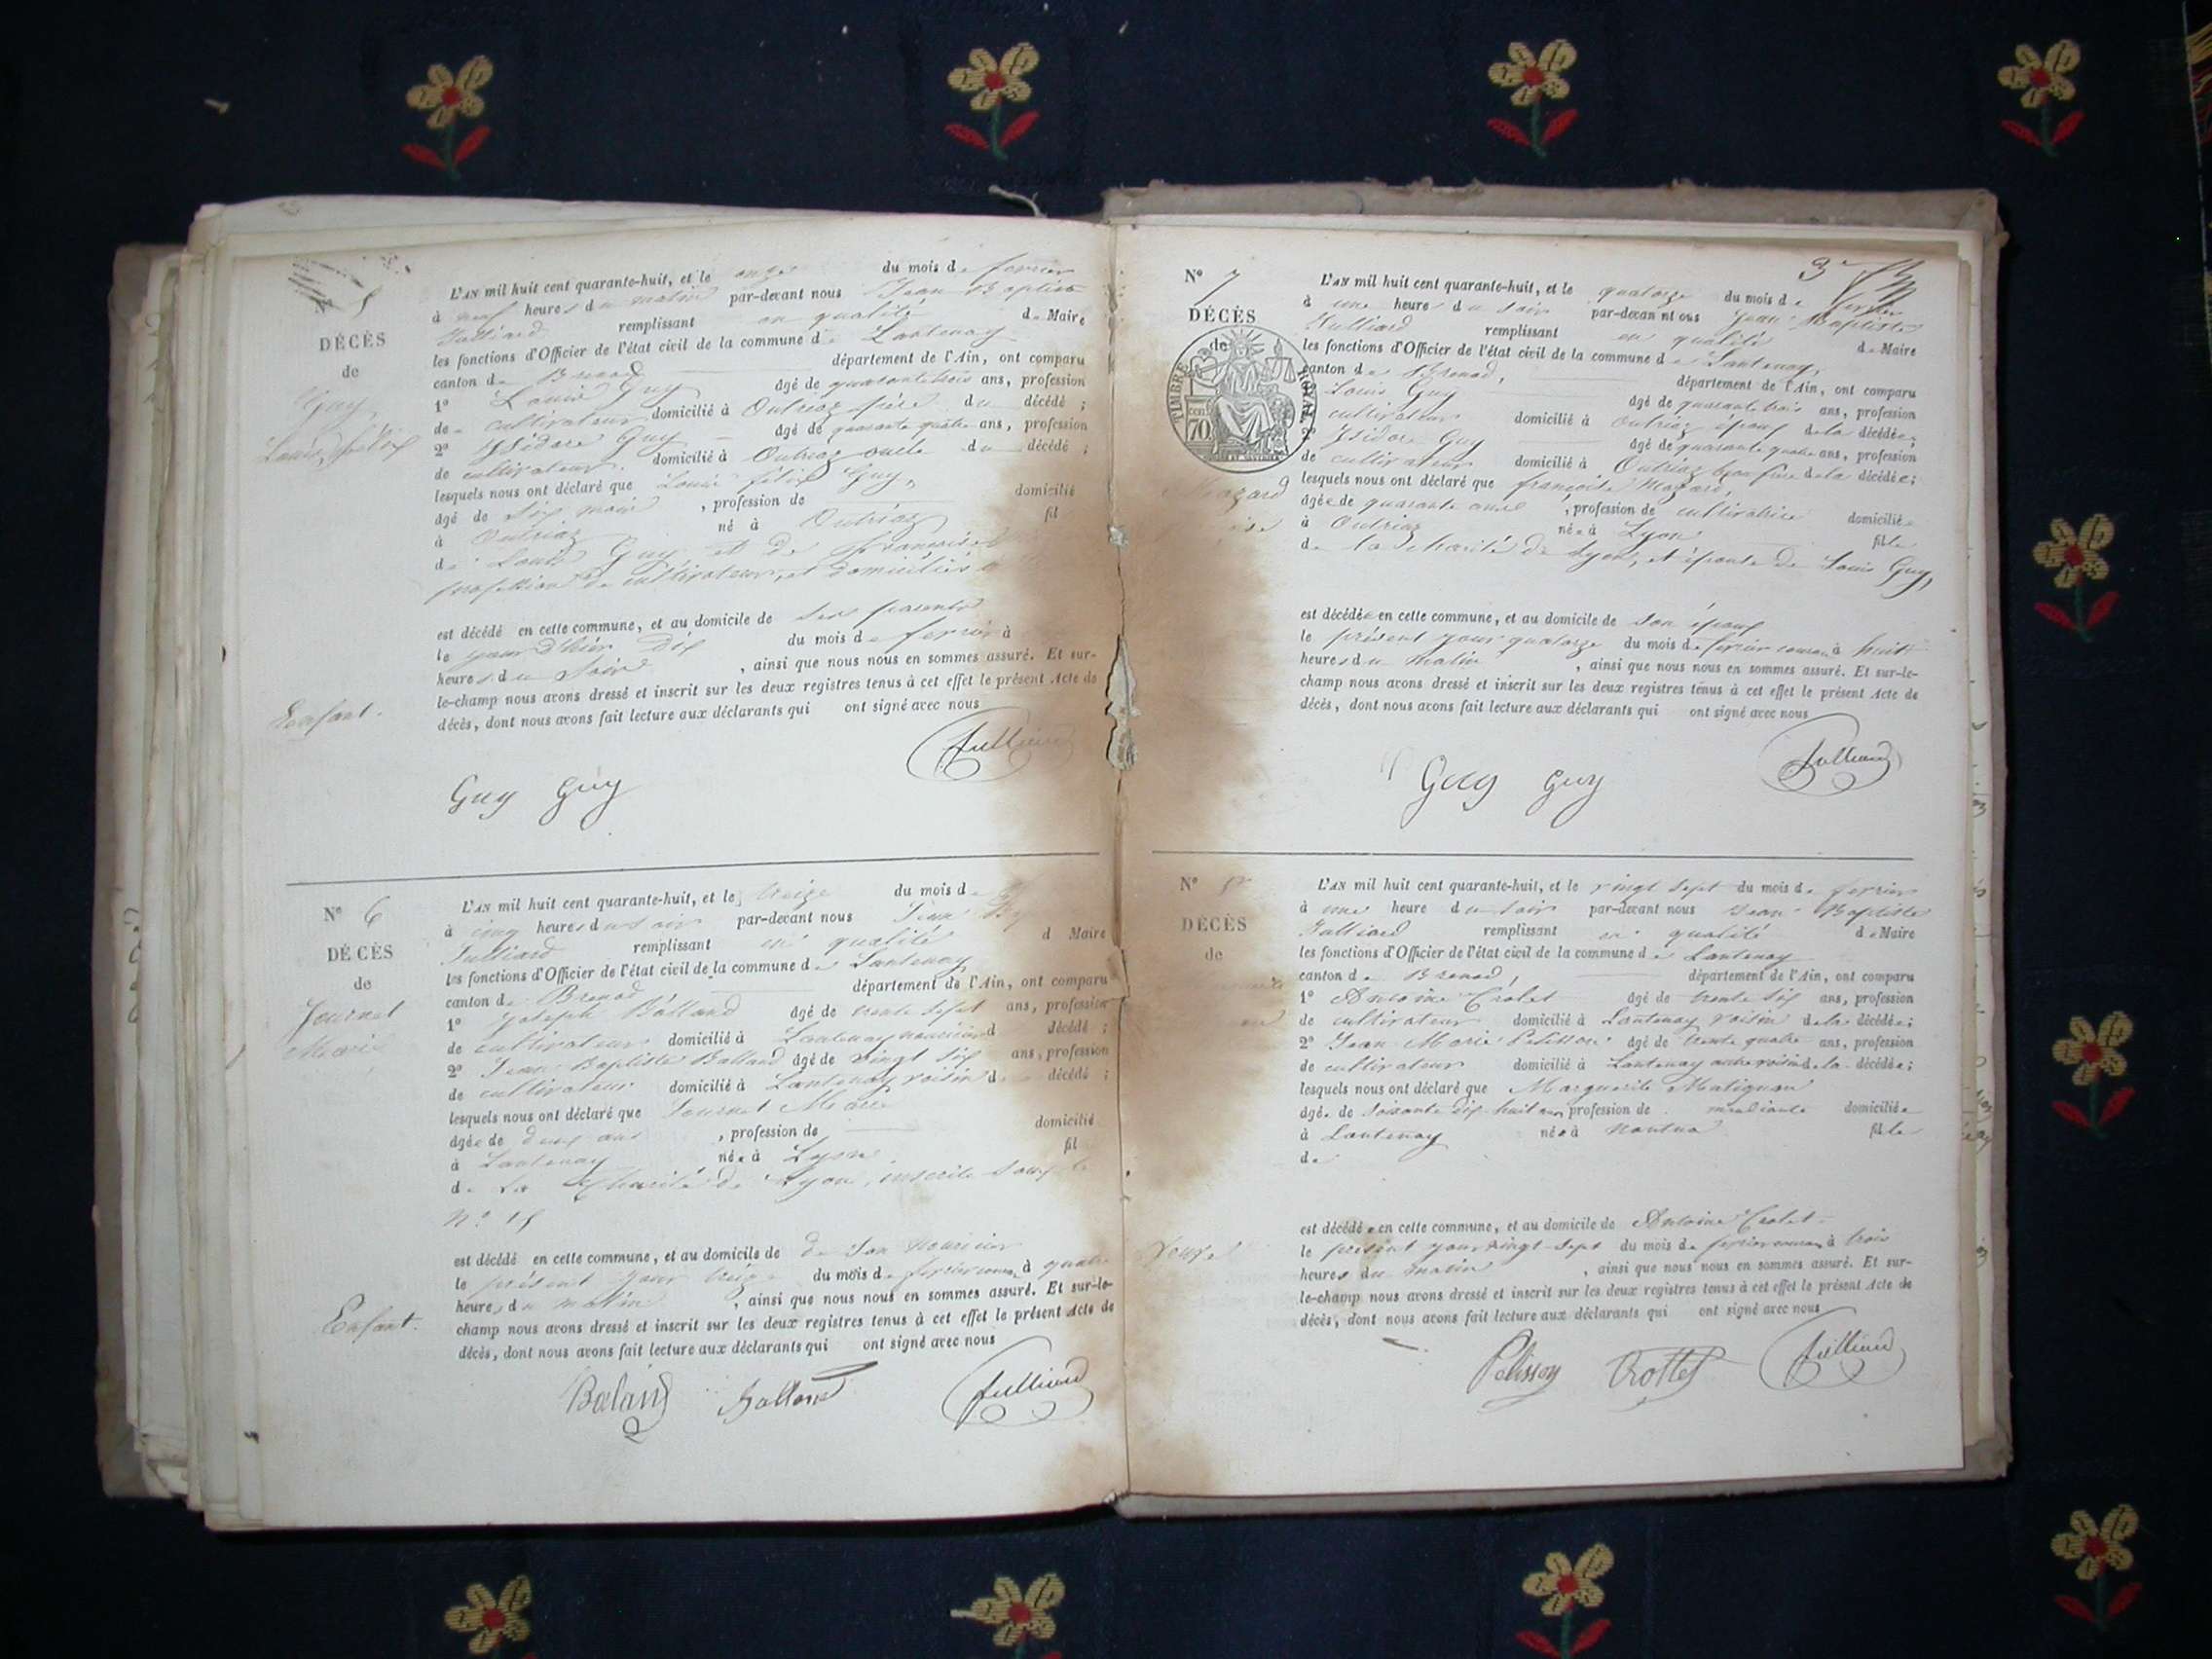 5
DÉCÈS
de
Guy
Louis félix
Enfant.
L'AN mil huit cent quarante-huit, et le onze du mois de fevrier
à neuf heures du matin par-devant nous Jean Baptiste
Julliard remplissant en qualité de Maire
les fonctions d'Officier de l'état civil de la commune de Lantenay
canton de Brenod département de l'Ain, ont comparu
1° Louis Guy âgé de quarante trois ans, profession
de cultivateur domicilié à Outriaz père du décédé ;
2° Isidore Guy âgé de quarante quatre ans, profession
de cultivateur. domicilié à Outriaz oncle du décédé ;
lesquels nous ont déclaré que Louis félix Guy,
âgé de six mois , profession de domicilié
à Outriaz né à Outriaz fil
de Louis Guy et de françoise
profession de cultivateur, et domiciliés
est décédé en cette commune, et au domicile de ses parents
le jour d'hier dix du mois de fevrier à
heures du soir , ainsi que nous nous en sommes assuré. Et sur-
le-champ nous avons dressé et inscrit sur les deux registres tenus à cet effet le présent Acte de
décès, dont nous avons fait lecture aux déclarants qui ont signé avec nous
Julliard
Guy Guy
N° 6
DÉCÈS
de
Journet
Marie
Enfant.
L'AN mil huit cent quarante-huit, et le treize du mois de
à cinq heures du soir par-devant nous Jean
Julliard remplissant en qualité d Maire
les fonctions d'Officier de l'état civil de la commune de Lantenay
canton de Brenod département de l'Ain, ont comparu
1° Joseph Balland âgé de trente sept ans, profession
de cultivateur domicilié à Lantenay nouricier d décédé ;
2° Jean Baptiste Balland âgé de vingt six ans, profession
de cultivateur domicilié à Lantenay voisin d décédé ;
lesquels nous ont déclaré que Journet Marie
âgée de deux ans , profession de domicilié
à Lantenay née à Lyon fil
de la Charité de Lyon, inscrite sous le
N° 15
est décédé en cette commune, et au domicile de de son nouricier
le présent jour treize du mois de fevrier courant à quatre
heures du matin , ainsi que nous nous en sommes assuré. Et sur-le-
champ nous avons dressé et inscrit sur les deux registres tenus à cet effet le présent Acte de
décès, dont nous avons fait lecture aux déclarants qui ont signé avec nous
Baland Balland Julliard
3e
N° 7
DÉCÈS
de
TIMBRE ROYAL
70 cent
Mazard
L'AN mil huit cent quarante-huit, et le quatorze du mois de fevrier
à une heure du soir par-devant nous Jean Baptiste
Julliard remplissant en qualité de Maire
les fonctions d'Officier de l'état civil de la commune de Lantenay,
canton de Brenod, département de l'Ain, ont comparu
Louis Guy âgé de quarante trois ans, profession
cultivateur domicilié à Outriaz époux de la décédée ;
2° Isidore Guy âgé de quarante quatre ans, profession
de cultivateur domicilié à Outriaz beau frère de la décédée ;
lesquels nous ont déclaré que françoise Mazard,
âgée de quarante , profession de cultivatrice domiciliée
à Outriaz née à Lyon fille
de la Charité de Lyon, et épouse de Louis Guy,
est décédée en cette commune, et au domicile de son époux
le présent jour quatorze du mois de fevrier courant à huit
heures du matin , ainsi que nous nous en sommes assuré. Et sur-le-
champ nous avons dressé et inscrit sur les deux registres tenus à cet effet le présent Acte de
décès, dont nous avons fait lecture aux déclarants qui ont signé avec nous
Julliard
Guy Guy
N° 8
DÉCÈS
de
Veuve
L'AN mil huit cent quarante-huit, et le vingt sept du mois de fevrier
à une heure du soir par-devant nous Jean Baptiste
Julliard remplissant en qualité de Maire
les fonctions d'Officier de l'état civil de la commune de Lantenay
canton de Brenod, département de l'Ain, ont comparu
1° Antoine Crolet âgé de trente six ans, profession
de cultivateur domicilié à Lantenay voisin de la décédée ;
2° Jean Marie Pelisson âgé de trente quatre ans, profession
de cultivateur domicilié à Lantenay autre voisin de la décédée ;
lesquels nous ont déclaré que Marguerite Matignon
âgée de soixante dix huit ans profession de mendiante domiciliée
à Lantenay née à Nantua fille
de
est décédée en cette commune, et au domicile de Antoine Crolet
le présent jour vingt-sept du mois de fevrier courant à trois
heures du matin , ainsi que nous nous en sommes assuré. Et sur-
le-champ nous avons dressé et inscrit sur les deux registres tenus à cet effet le présent Acte de
décès, dont nous avons fait lecture aux déclarants qui ont signé avec nous
Pelisson Crollet Julliard